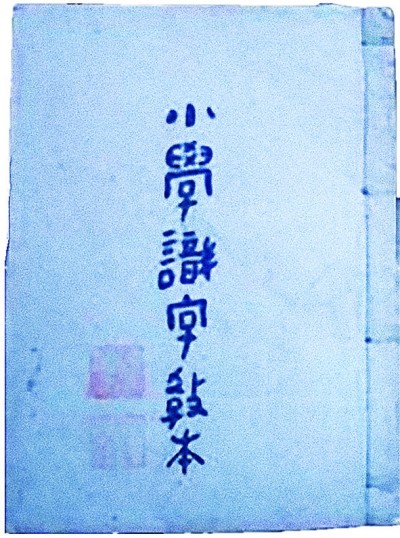 小學識字敎本